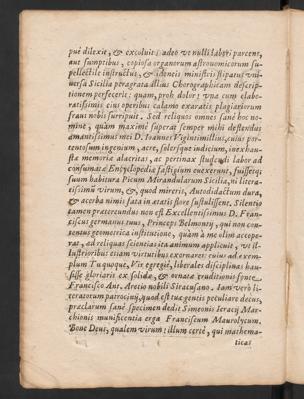 pué dilexit, & excoluit: adeo vt nulli labori parcens,
aut sumptibus, copiosa organorum astronomicorum su-
pellectile instructus, & idoneis ministris stipatus vni-
uersa Sicilia peragrata illius Chorographicam descrip-
tionem perfecerit: quam, proh dolor; vna cum elabo-
ratissimis eius operibus calamo exaratis plagiariorum
fraus nobis surripuit. Sed reliquos omnes sanè hoc no-
mine, quàm maximè superat semper mihi deflendus
amantissimus mei D. Ioannes Vigintimillius, cuius por-
tentosum ingenium, acre, solersque iudicium, inexhau-
sta memoria alacritas, ac pertinax studendi labor ad
consumatæ Encyclopediæ fastigium euexerunt, fuissetq;
suum habitura Picum Mirandularum Sicilia, ni litera-
tissimū virum, &, quod mireris, Autodidactum dura,
& acerba nimis fata in ætatis flore sustulissent. Silentio
tamen prætereundus non est Excellentissimus D. Fran-
ciscus germanus tuus, Princeps Belmontij, qui non con-
tentus geometrica institutione, quàm à me olim accepe-
rat, ad reliquas scientias ita animum applicuit, vt il-
lustrioribus etiam virtutibus exornares: cuius ad exem-
plum Tu quoque, Vir egregiè, liberales disciplinas hau-
sisse gloriaris ex solidæ, & ornatæ eruditionis fonte
Francisco Ant. Arecio nobili Siracusano. Iam verò li-
teratorum patrocinij, quod est tuæ gentis peculiare decus,
præclarum sanè specimen dedit Simeonis Ieracij Mar-
chionis munificentia erga Franciscum Maurolycum.
Bone Deus, qualem virum! illum certè, qui mathema-
ticas